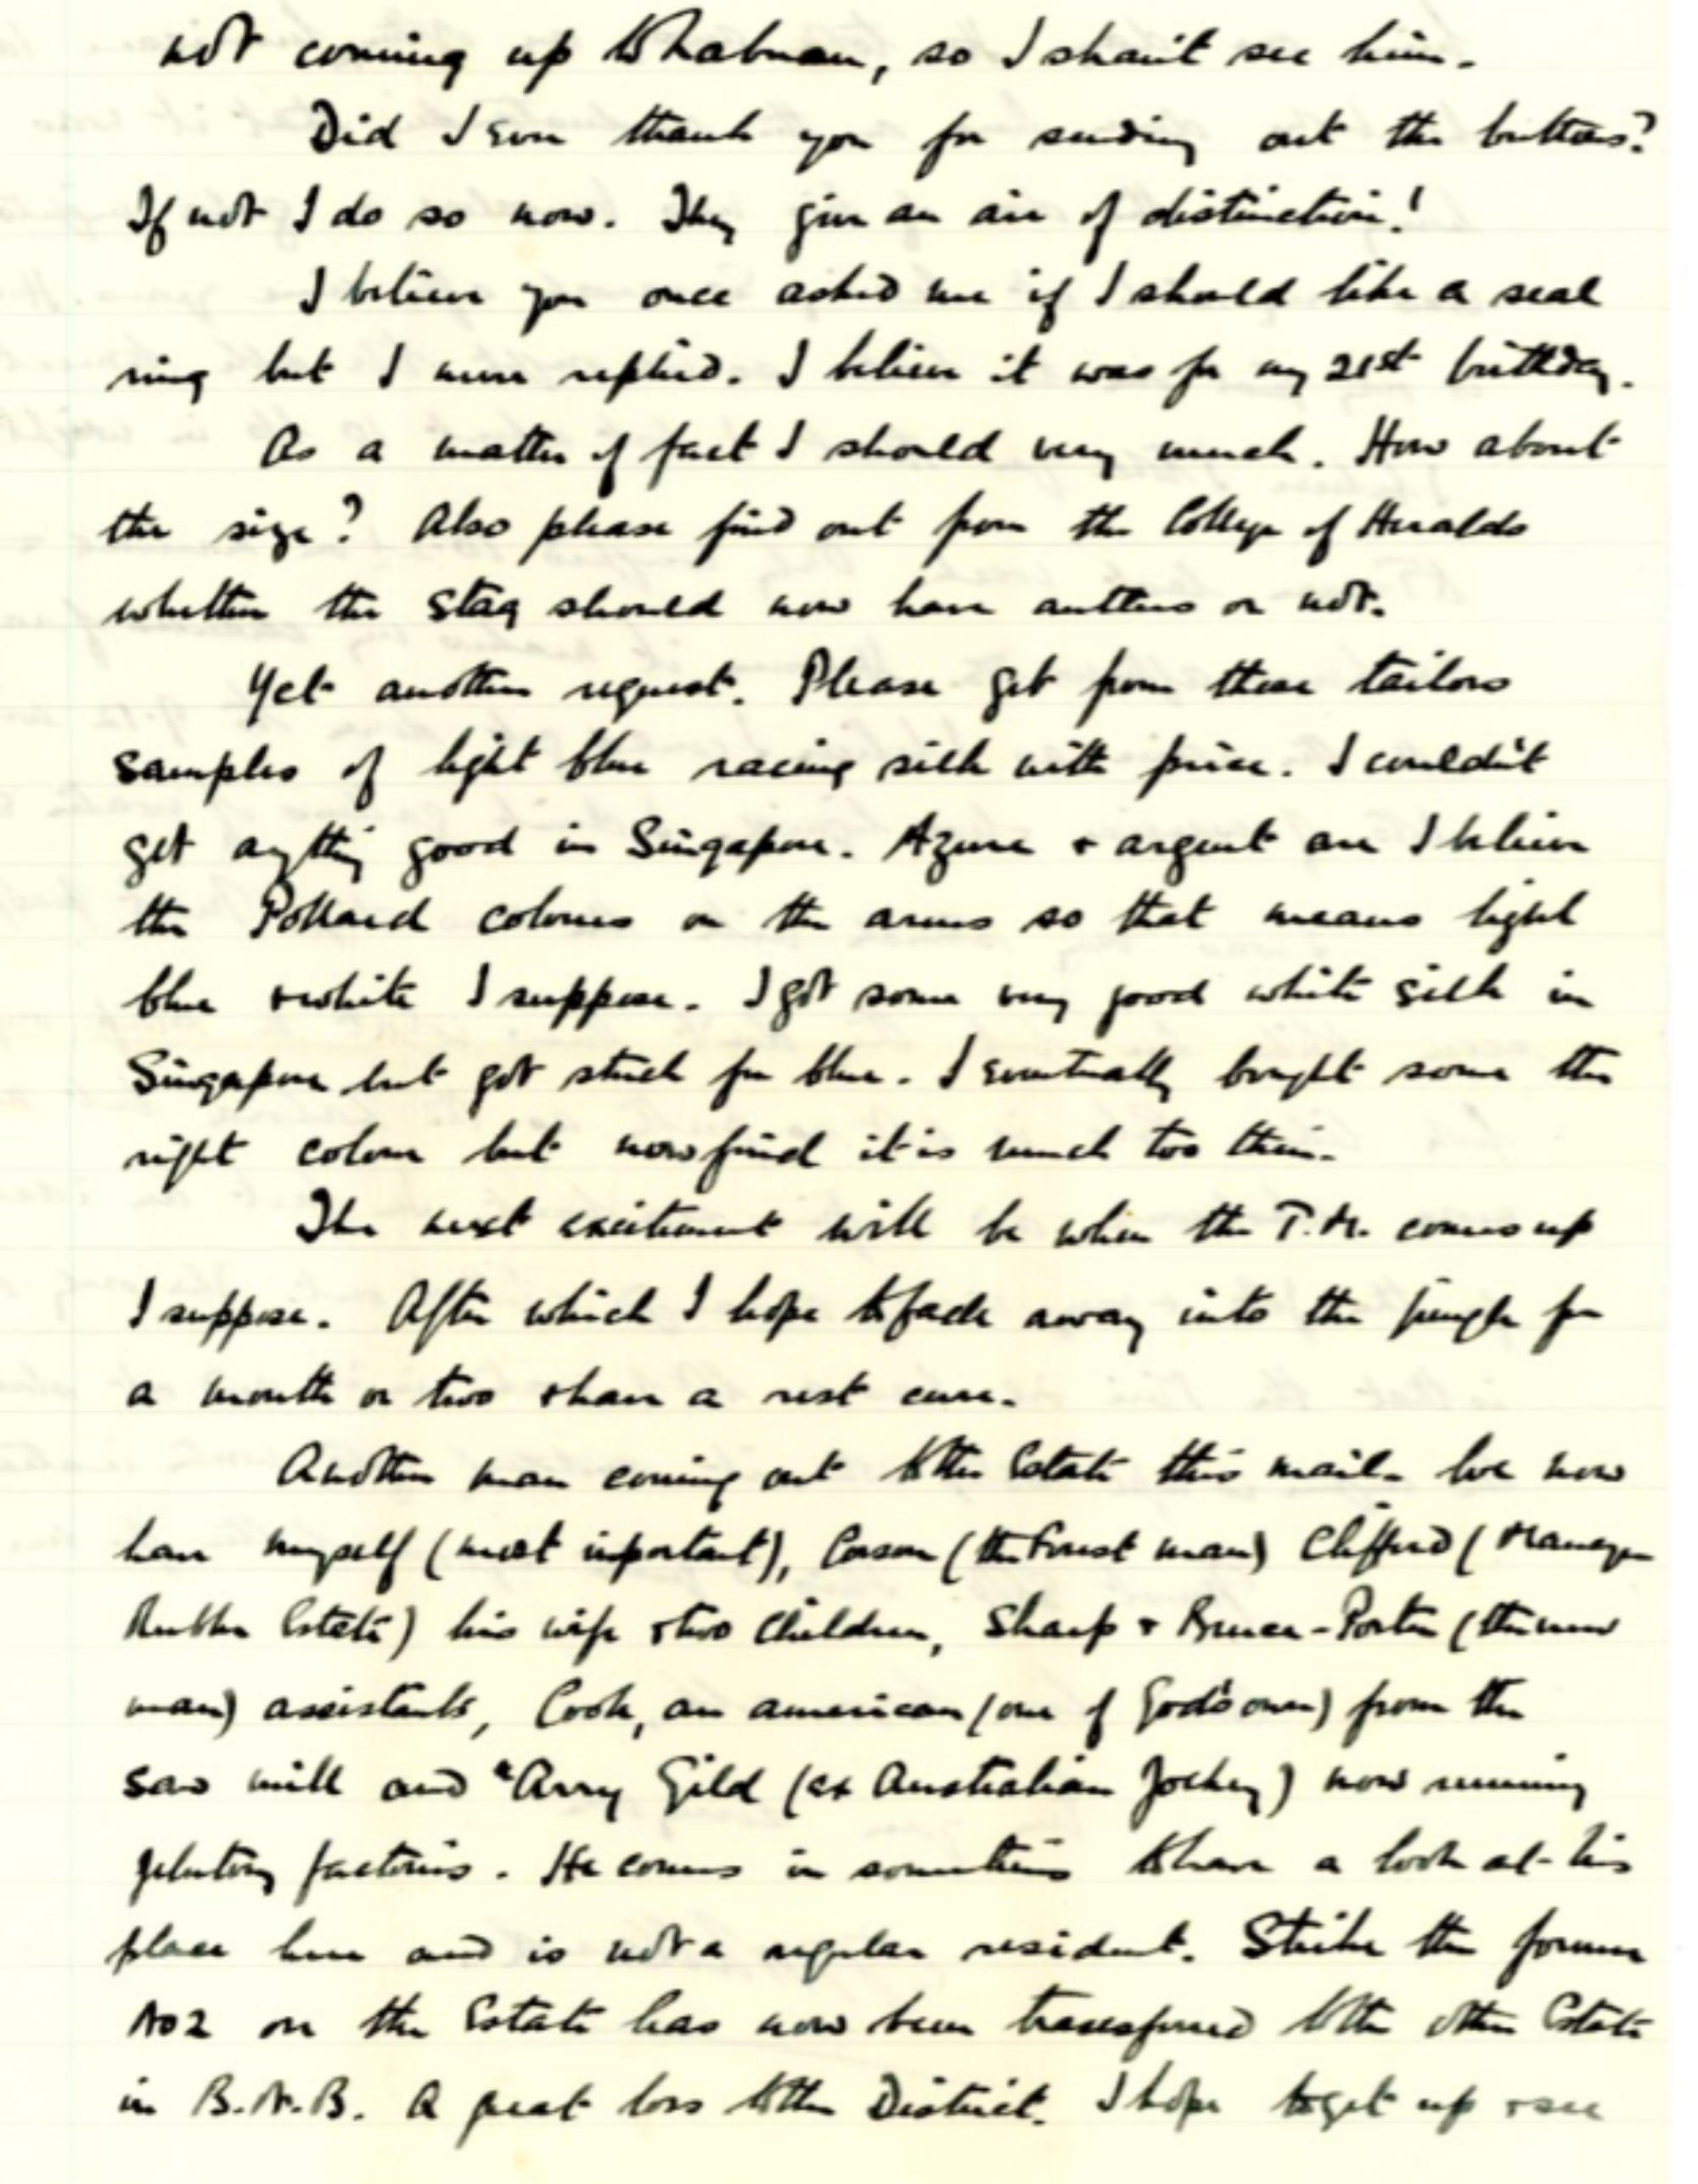 not coming up to Labuan, so I shan't see him.
Did I ever thank you for sending out the buttons?
If not I do so now. They give an air of distinction!
I believe you once asked me if I should like a seal
ring but I never replied. I believe it was for my 21st birthday.
As a matter of fact I should very much. How about
the size? Also please find out from the College of Heralds
whether the stag should now have antlers or not.
Yet another request. Please get from these tailors
samples of light blue racing silk with price. I couldn't
get anything good in Singapore. Azure + argent are I believe
the Pollard colours on the arms so that means light
blue + white I suppose. I got some very good white silk in
Singapore but got stuck for blue. I eventually bought some the
right colour but now find it is much too thin.
The next excitement will be when the T.M. comes up
I suppose. After which I hope to fade away into the jungle for
a month or two + have a rest cure.
Another man coming out to the Estate this mail. We now
have myself (most important), Cason (the Forest man) Clifford (Manager
Rubber Estate) his wife + two children, Sharp + Bruce-Porter (the new
man) assistants, Cook, an american (one of God's own) from the
saw mill and 'Arry Gild (ex Australian Jockey) now running
jelutong factories. He comes in sometimes to have a look at his
place here and is not a regular resident. Strike the former
No 2 on the Estate has now been transferred to the other Estate
in B.N.B. A great loss to the District. I hope to get up + see